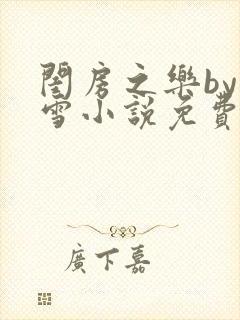 閨房之樂by
雪小說免費
廣下嘉